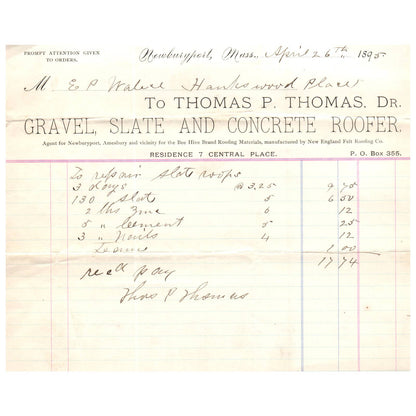 PROMPT ATTENTION GIVEN
TO ORDERS.
Newburyport, Mass., April 26th 1895
M E P Hawkswood Place
To THOMAS P. THOMAS, DR.
GRAVEL, SLATE AND CONCRETE ROOFER.
Agent for Newburyport, Amesbury and vicinity for the Bee Hive Brand Roofing Materials, manufactured by New England Felt Roofing Co.
RESIDENCE 7 CENTRAL PLACE. P. O. BOX 355.
To repair slate roofs
3 days $3.25 9 75
130 slate 5 6 50
2 lbs zinc 6 12
5 " cement 5 25
3 " Nails 4 12
1 00
17 74
recd pay
Thos P Thomas